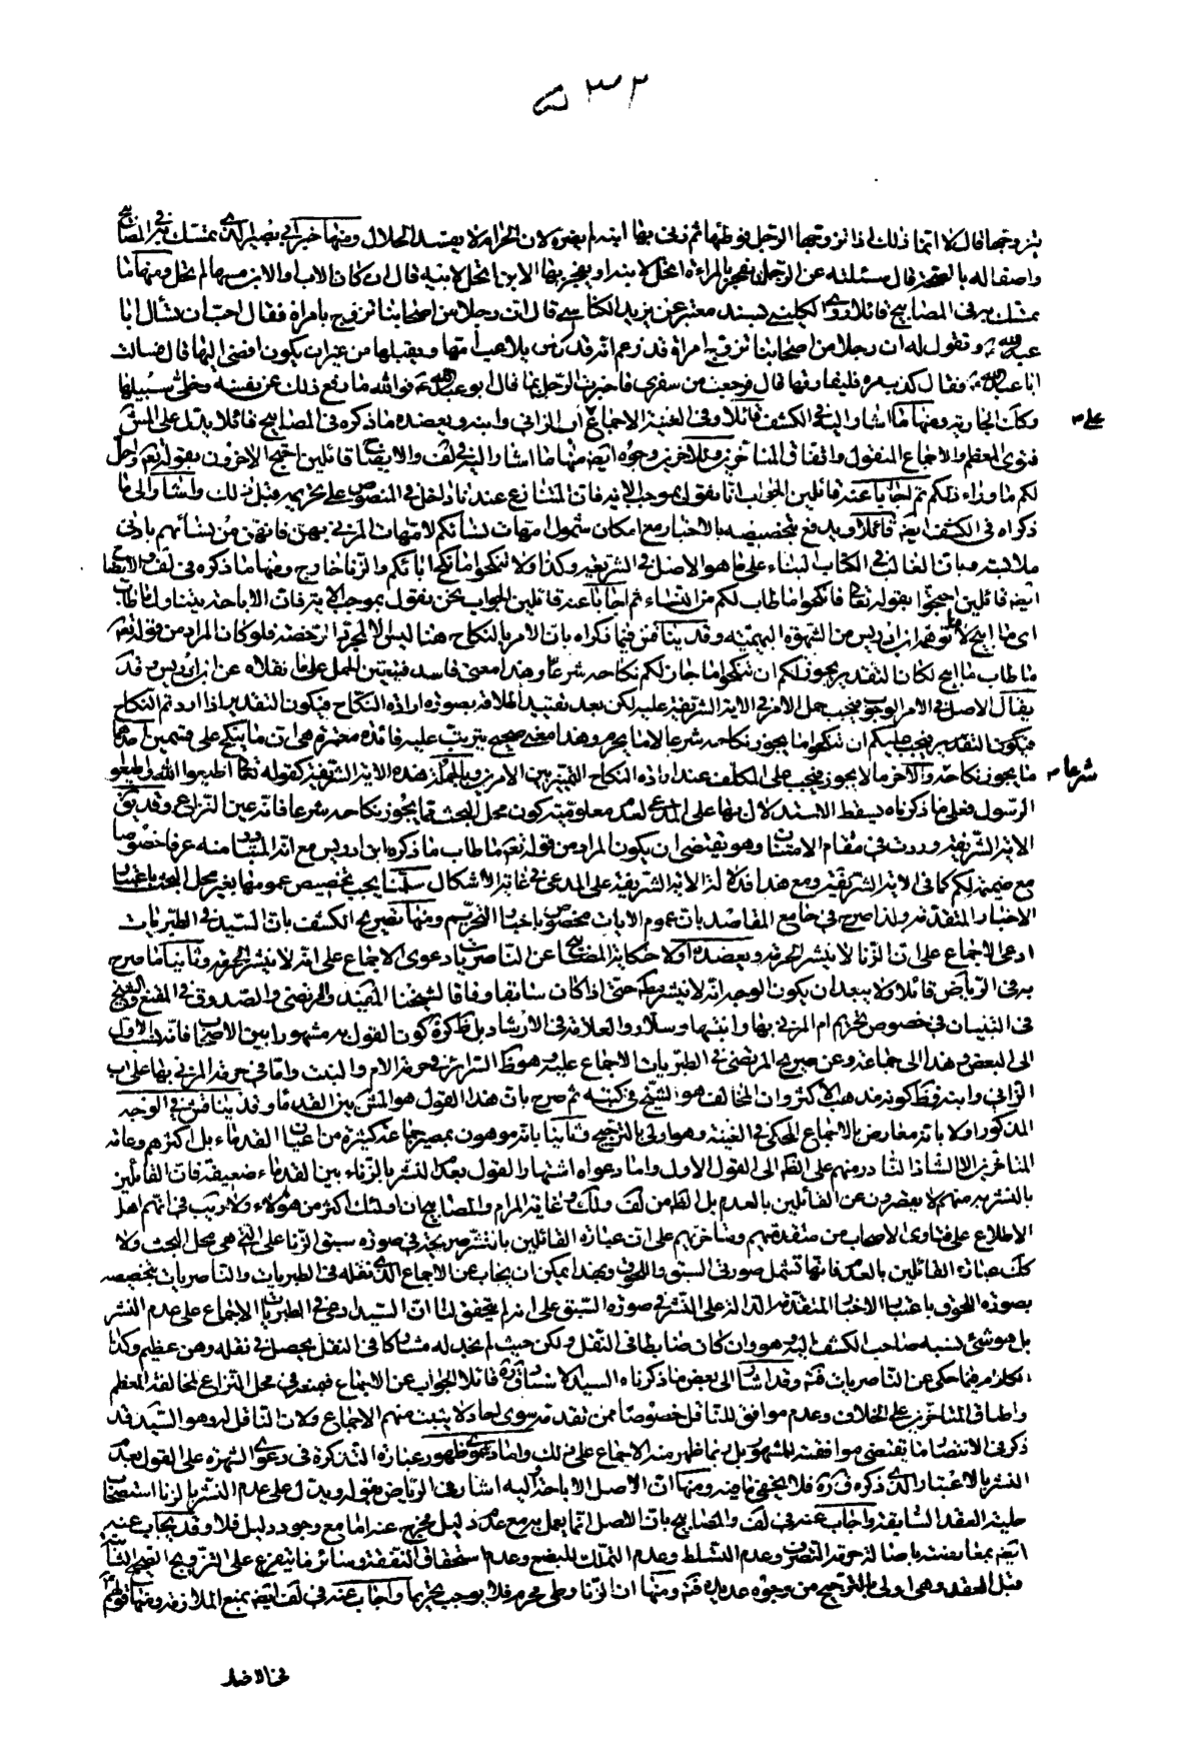 ٥٣٢
يتزوجها قال لا انما ذلك اذا تزوجها الرجل فوطئها ثم زنى بها ابنه لم يضره لان الحرام لا يفسد الحلال ومنها خبر ابي بصير الذي تمسك به في المصابيح
واصفا له بالصحة قال سئلته عن الرجل يفجر بالمراة اتحل لابنه او يفجر بها الابن اتحل لابيه قال ان كان الاب او الابن مسها لم تحل ومنها ما
تمسك به في المصابيح قائلا روى الكليني بسند معتبر عن يزيد الكناسي قال ان رجلا من اصحابنا تزوج بامراة فقال احب ان تسأل ابا
عبد الله ع وتقول له ان رجلا من اصحابنا تزوج امراة قد زعم انه قد كان يلاعب امها ويقبلها من غير ان يكون افضى اليها قال فسالت
ابا عبد الله ع فقال كذب مره فليفارقها قال فرجعت من سفري فاخبرت الرجل بما قال ابو عبد الله ع فوالله ما دفع ذلك عن نفسه وخلى سبيلها
وكان الجارية ومنها ما اشار اليه في الكشف قائلا وفي الغنية الاجماع على اب الزاني وابنه ويعضده ما ذكره في المصابيح قائلا يدل على النشر
علي م
فتوى المعظم والاجماع المنقول واتفاق المتاخرين وللاخرين وجوه ايضا منها ما اشار اليه في لف والايضاح قائلين احتج الاخرون بقوله تعالى واحل
لكم ما وراء ذلكم ثم اجابا عنه قائلين الجواب انا نقول بموجب الاية فان المتنازع عندنا داخل في المنصوص على تحريمه قبل ذلك واشار الى ما
ذكراه في الكشف ايضا قائلا ويدفع بتخصيصه بالاخبار مع امكان شمول امهات نسائكم لامهات المزني بهن فانهن من نسائهم بادنى
ملابسة وبان الغالب في الكتاب البناء على ما هو الاصل في الشريعة وكذا ولا تنكحوا ما نكح اباؤكم والزنا خارج ومنها ما ذكره في لف والايضاح
ايضا قائلين احتجوا بقوله تعالى فانكحوا ما طاب لكم من النساء ثم اجابا عنه قائلين الجواب نحن نقول بموجب الاية
اي ما ابيح لا من الشهوة البهيمية وقد بينا فيما ذكراه بان الامر بالنكاح هنا ليس الا لمجرد الرخصة فلو كان المراد من قوله تعالى
ما طاب ما ابيح لكان التقدير يجوز لكم ان تنكحوا ما جاز لكم نكاحه شرعا وهذا معنى فاسد فتعين الحمل على ما نقلاه عن ابن ادريس قد
يقال الاصل في الامر الوجوب فيجب حمل الامر في الاية الشريفة عليه لكن بعد تقييد اطلاقه بصورة ارادة النكاح فيكون التقدير اذا اردتم النكاح
فيكون التقدير يجب عليكم ان تنكحوا ما يجوز نكاحه شرعا لا ما يحرم وهذا معنى صحيح يترتب عليه فائدة معتبرة هي ان ما ينكح على قسمين احدهما
ما يجوز نكاحه والاخر ما لا يجوز فيجب على المكلف عند ارادة النكاح التمييز بين الامرين وبالجملة هذه الاية الشريفة كقوله تعالى اطيعوا الله واطيعوا
شرعا م
الرسول فعلى ما ذكرناه يسقط الاستدلال بها على المدعى لعدم معلومية كون محل البحث مما يجوز نكاحه شرعا فانه عين النزاع وقد يق
الاية الشريفة وردت في مقام الامتنان وهو يقتضي ان يكون المراد من قوله تعالى ما طاب ما ذكره ابن ادريس مع انه المتبادر منه عرفا خصوصا
مع ضميمة لكم كما في الاية الشريفة ومع هذا فدلالة الاية الشريفة على المدعى في غاية الاشكال سلمنا يجب تخصيص عمومها بغير محل البحث باعتبار
الاخبار المتقدمة ولذا صرح في جامع المقاصد بان عموم الايات مخصوص باخبار التحريم ومنها تصريح الكشف بان السيد في الطبريات
ادعى الاجماع على ان الزنا لا ينشر الحرمة ويعضده اولا حكاية المصابيح عن الناصريات دعوى الاجماع على انه لا ينشر الحرمة وثانيا ما صرح
به في الرياض قائلا ولا يبعد ان يكون الوجه انه لا ينشر مطلقا حتى اذا كان سابقا وفاقا لشيخنا المفيد والمرتضى والصدوق في المقنع والشيخ
في التبيان في خصوص تحريم ام المزني بها وابنتها وسلار والعلامة في الارشاد بل ظ كرة كون القول به مشهورا بين الاصحاب فانه نسب الاول
الى البعض وهذا الى جماعة وعن صريح المرتضى في الطبريات الاجماع عليه هو ظ السرائر في حرمة الام والبنت واما في حرمة المزني بها على اب
الزاني وابنه فظ كونه مذهب الاكثر وان المخالف هو الشيخ في كتبه ثم صرح بان هذا القول هو المشهور بين القدماء وقد يناقش في الوجه
المذكور اولا بانه معارض بالاجماع المحكي في الغنية وهو اولى بالترجيح وثانيا بانه موهون بمصير جماعة كثيرة من اعيان القدماء بل اكثرهم وعامة
المتاخرين الا الشاذ النادر منهم على الظ الى القول الاول واما دعواه اشتهار القول بعدم النشر بالزناء بين القدماء ضعيفة فان القائلين
بالنشر به منهم لا يقصرون عن القائلين بالعدم بل الظ من لف ولك وغاية المرام والمصابيح ان اولئك اكثر من هؤلاء ولا ريب في انهم اهل
الاطلاع على فتاوى الاصحاب من متقدميهم ومتاخريهم على ان عبارة القائلين بالنشر صريحة في صورة سبق الزنا على التي هي محل البحث ولا
كك عبارة القائلين بالعدم فانها تشمل صورتي السبق واللحوق وبهذا يمكن ان يجاب عن الاجماع الذي نقله في الطبريات والناصريات بتخصيصه
بصورة اللحوق باعتبار الاخبار المتقدمة الدالة على النشر في صورة السبق على انه لم يتحقق لنا ان السيد ادعى في الطبريات الاجماع على عدم النشر
بل هو شيء نسبه صاحب الكشف اليه وهو وان كان ضابطا في النقل ولكن حيث لم نجد له مشاركا في النقل يحصل في نقله وهن عظيم وكذا
الكلام فيما حكي عن الناصريات فت وقد اشار الى بعض ما ذكرناه السيد الاستاد قده قائلا الجواب عن الاجماع فبمنعه في محل النزاع لمخالفة المعظم
واطباق المتاخرين على الخلاف وعدم موافق للناقل خصوصا ممن تقدمه سوى احاد لا يثبت منهم الاجماع ولان الناقل له وهو السيد قد
ذكر في الانتصار ما يقتضي موافقته للمشهور بل ربما ظهر منه الاجماع على ذلك واما دعوى ظهور عبارة التذكرة في دعوى الشهرة على القول بعدم
النشر بالاعتبار الذي ذكره في كرة فلا يخفى ما فيه ومنها ان الاصل الاباحة اليه اشار في الرياض بقوله ويدل على عدم النشر بالزنا استصحاب
حلية العقد السابقة واجاب عنه في لف والمصابيح بان الاصل انما يعمل به مع عدم دليل مخرج عنه اما مع وجود دليل فلا وقد يجاب عنه
ايضا بمعارضته باصالة حرمة التصرف وعدم التسلط وعدم التملك للبضع وعدم استحقاق النفقة وسائر ما يتفرع على التزويج الصحيح الثابت
قبل العقد وهي اولى بالترجيح من وجوه عديدة فت ومنها ان الزنا وطي محرم فلا يوجب تحريما واجاب عنه في لف ايضا بمنع الملازمة ومنها قولهم
في الاخبار